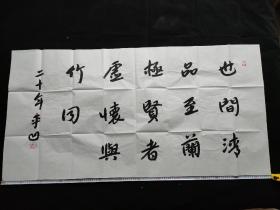 世間清
品至蘭
極賢者
虛懷與
竹同
二十年平凹